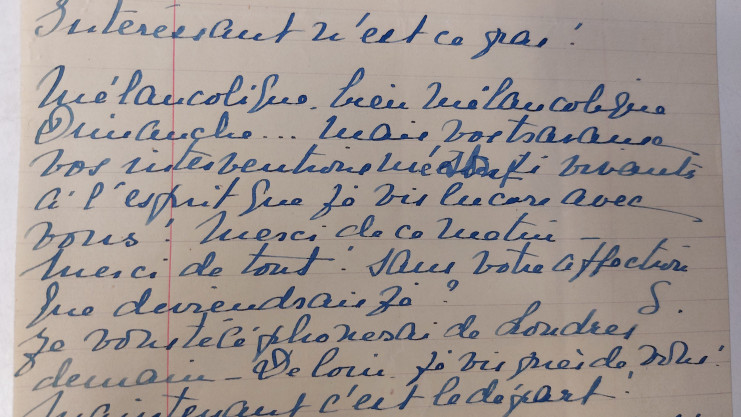 Intéressant n'est ce pas !
Mélancolique, bien mélancolique
Dimanche... mais vos travaux
vos interventions me sont si vivants
à l'esprit que je vis encore avec
vous ! Merci de ce matin –
Merci de tout ! Sans votre affection
que deviendrais je ?
S.
Je vous téléphonerai de Londres
demain – De loin je vis près de vous !
Maintenant c'est le départ !